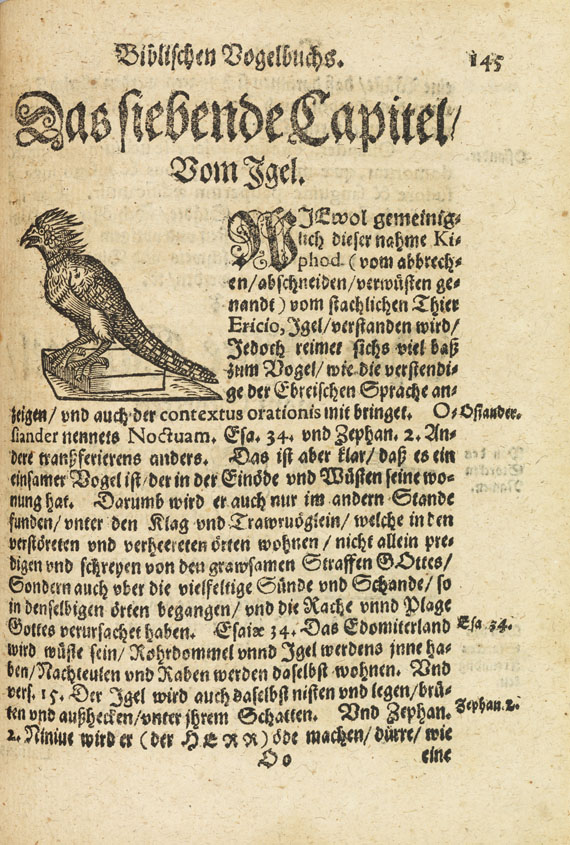 Biblischen Vogelbuchs. 145
Das siebende Capitel/
Vom Igel.
WIEwol gemeinig⸗
lich dieser nahme Ki⸗
phod (vom abbrech⸗
en/abschneiden/verwüsten ge⸗
nandt) vom stachlichen Thier
Ericio, Igel/verstanden wird/
Jedoch reimet sichs viel baß
zum Vogel/ wie die verstendi⸗
ge der Ebreischen Sprache an⸗
zeigen/ vnd auch der contextus orationis mit bringet. O⸗ Osiander.
siander nennets Noctuam. Esa. 34. vnd Zephan. 2. An⸗
dere tranßferierens anders. Das ist aber klar/ daß es ein
einsamer Vogel ist/ der in der Einöde vnd Wüsten seine wo⸗
nung hat. Darumb wird er auch nur im andern Stande
funden/ vnter den Klag vnd Trawrvöglein/ welche in den
verstöreten vnd verheereten örten wohnen/ nicht allein pre⸗
digen vnd schreyen von den grawsamen Straffen GOttes/
Sondern auch vber die vielfeltige Sünde vnd Schande/ so
in denselbigen örten begangen/ vnd die Rache vnnd Plage
Gottes verursachet haben. Esaiæ 34. Das Edomiterland Esa 34.
wird wüste sein/ Rohrdommel vnnd Igel werdens jnne ha⸗
ben/ Nachteulen vnd Raben werden daselbst wohnen. Vnd
vers. 15. Der Igel wird auch daselbst nisten vnd legen/ brü⸗
ten vnd außhecken/ vnter jhrem Schatten. Vnd Zephan. Zephan. 2.
2. Niniue wird er (der HERR) öde machen/ dürre/ wie
Oo eine